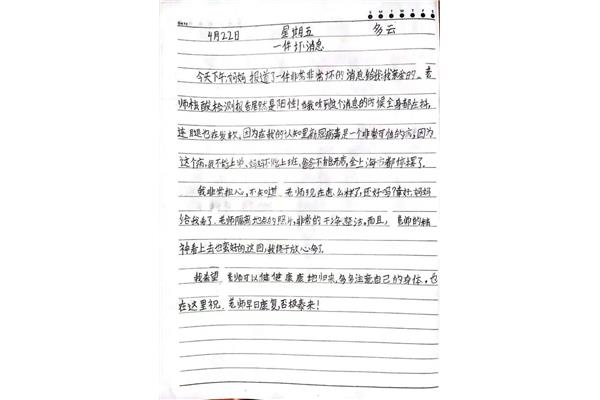 4月22日 星期五 多云
一件坏消息
今天下午,妈妈报道了一件非常非常坏的消息给我:我
师核酸检测报告居然是阳性!当我听到这个消息的时候全身都
连腿也在发软。因为在我的认知里新冠病毒是一个非常可怕的病,因为
这个病,我不能上学,妈妈不能上班,爸爸不能,全上海市都停摆了。
我非常担心,不知道 老师现在怎么样了,还好吗?幸好,妈妈
给我看了 老师隔离地点的照片,非常的干净整洁。而且, 老师的精
神看上去也蛮好的,这回,我终于放心多了。
我希望 老师可以健健康康地归来,多多注意自己的身体。也
在这里祝 老师早日康复,否极泰来!